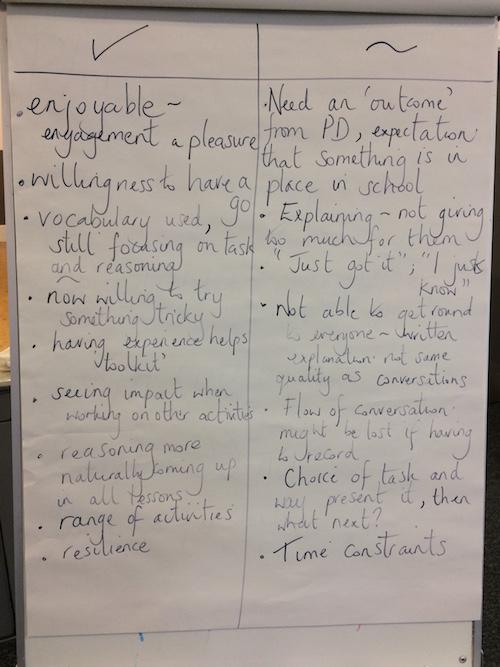 • enjoyable ~
engagement a pleasure
• willingness to have a
go
• vocabulary used,
still focusing on task
and reasoning
• now willing to try
something tricky
• having experience helps
'toolkit'
• seeing impact when
working on other activities
• reasoning more
naturally coming up
in all lessons
• range of activities
• resilience
~
• Need an 'outcome'
from PD, expectation
that something is in
place in school
• Explaining ~ not giving
too much for them
• "Just got it"; "I just
know"
• Not able to get round
to everyone ~ written
explanation not same
quality as conversations
• Flow of conversation
might be lost if having
to record
• Choice of task and
way present it, then
what next?
• Time constraints